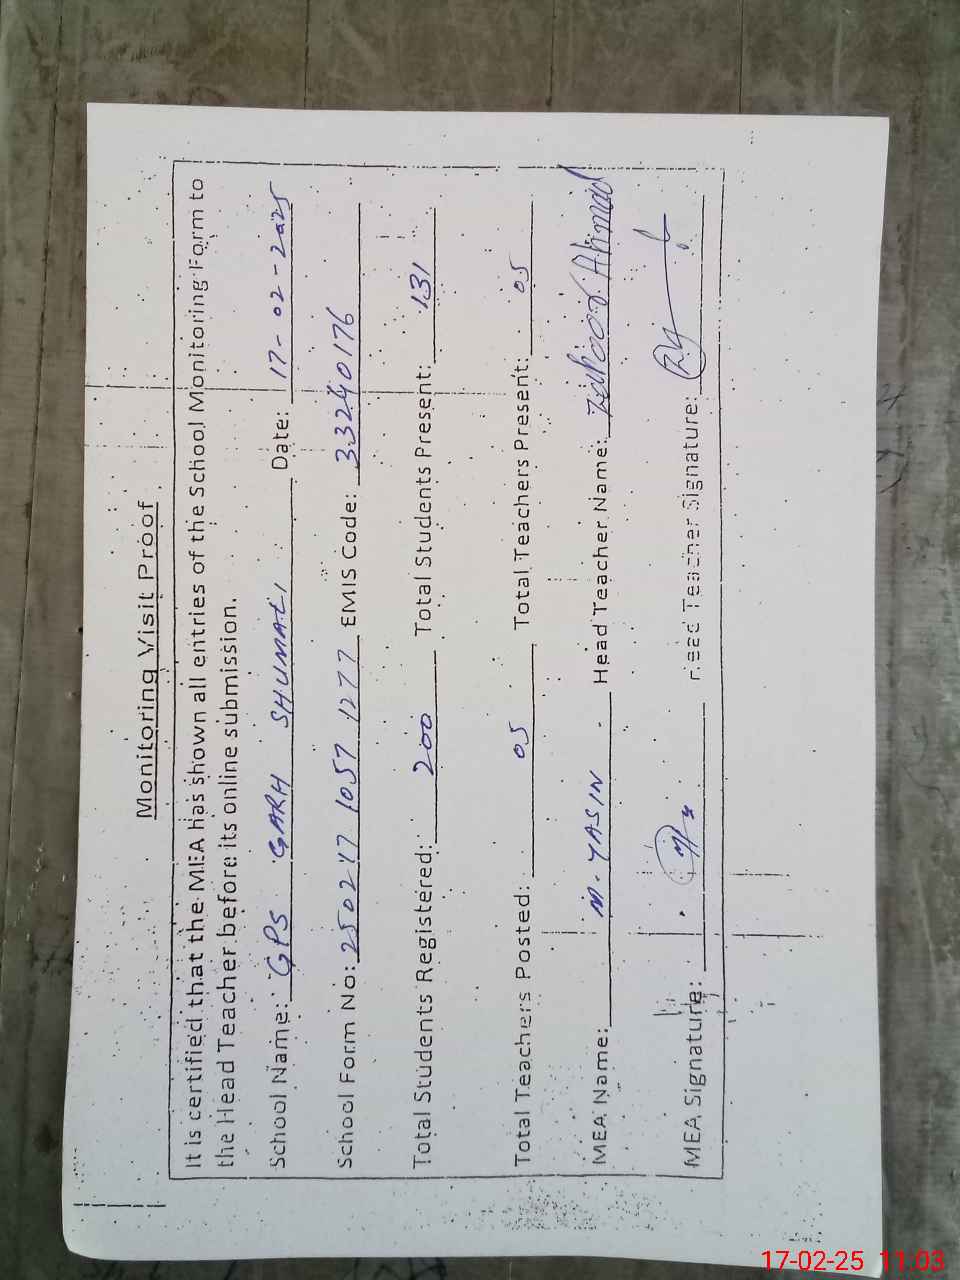 Monitoring Visit Proof
It is certified that the MEA has shown all entries of the School Monitoring Form to
the Head Teacher before its online submission.
School Name: GPS GARH SHUMALI Date: 17-02-2025
School Form No: 250217 1057 1277 EMIS Code: 33240176
Total Students Registered: 200 Total Students Present: 131
Total Teachers Posted: 05 Total Teachers Present: 05
MEA Name: M. YASIN Head Teacher Name: Ahmad
MEA Signature: Head Teacher Signature:
17-02-25 11:03